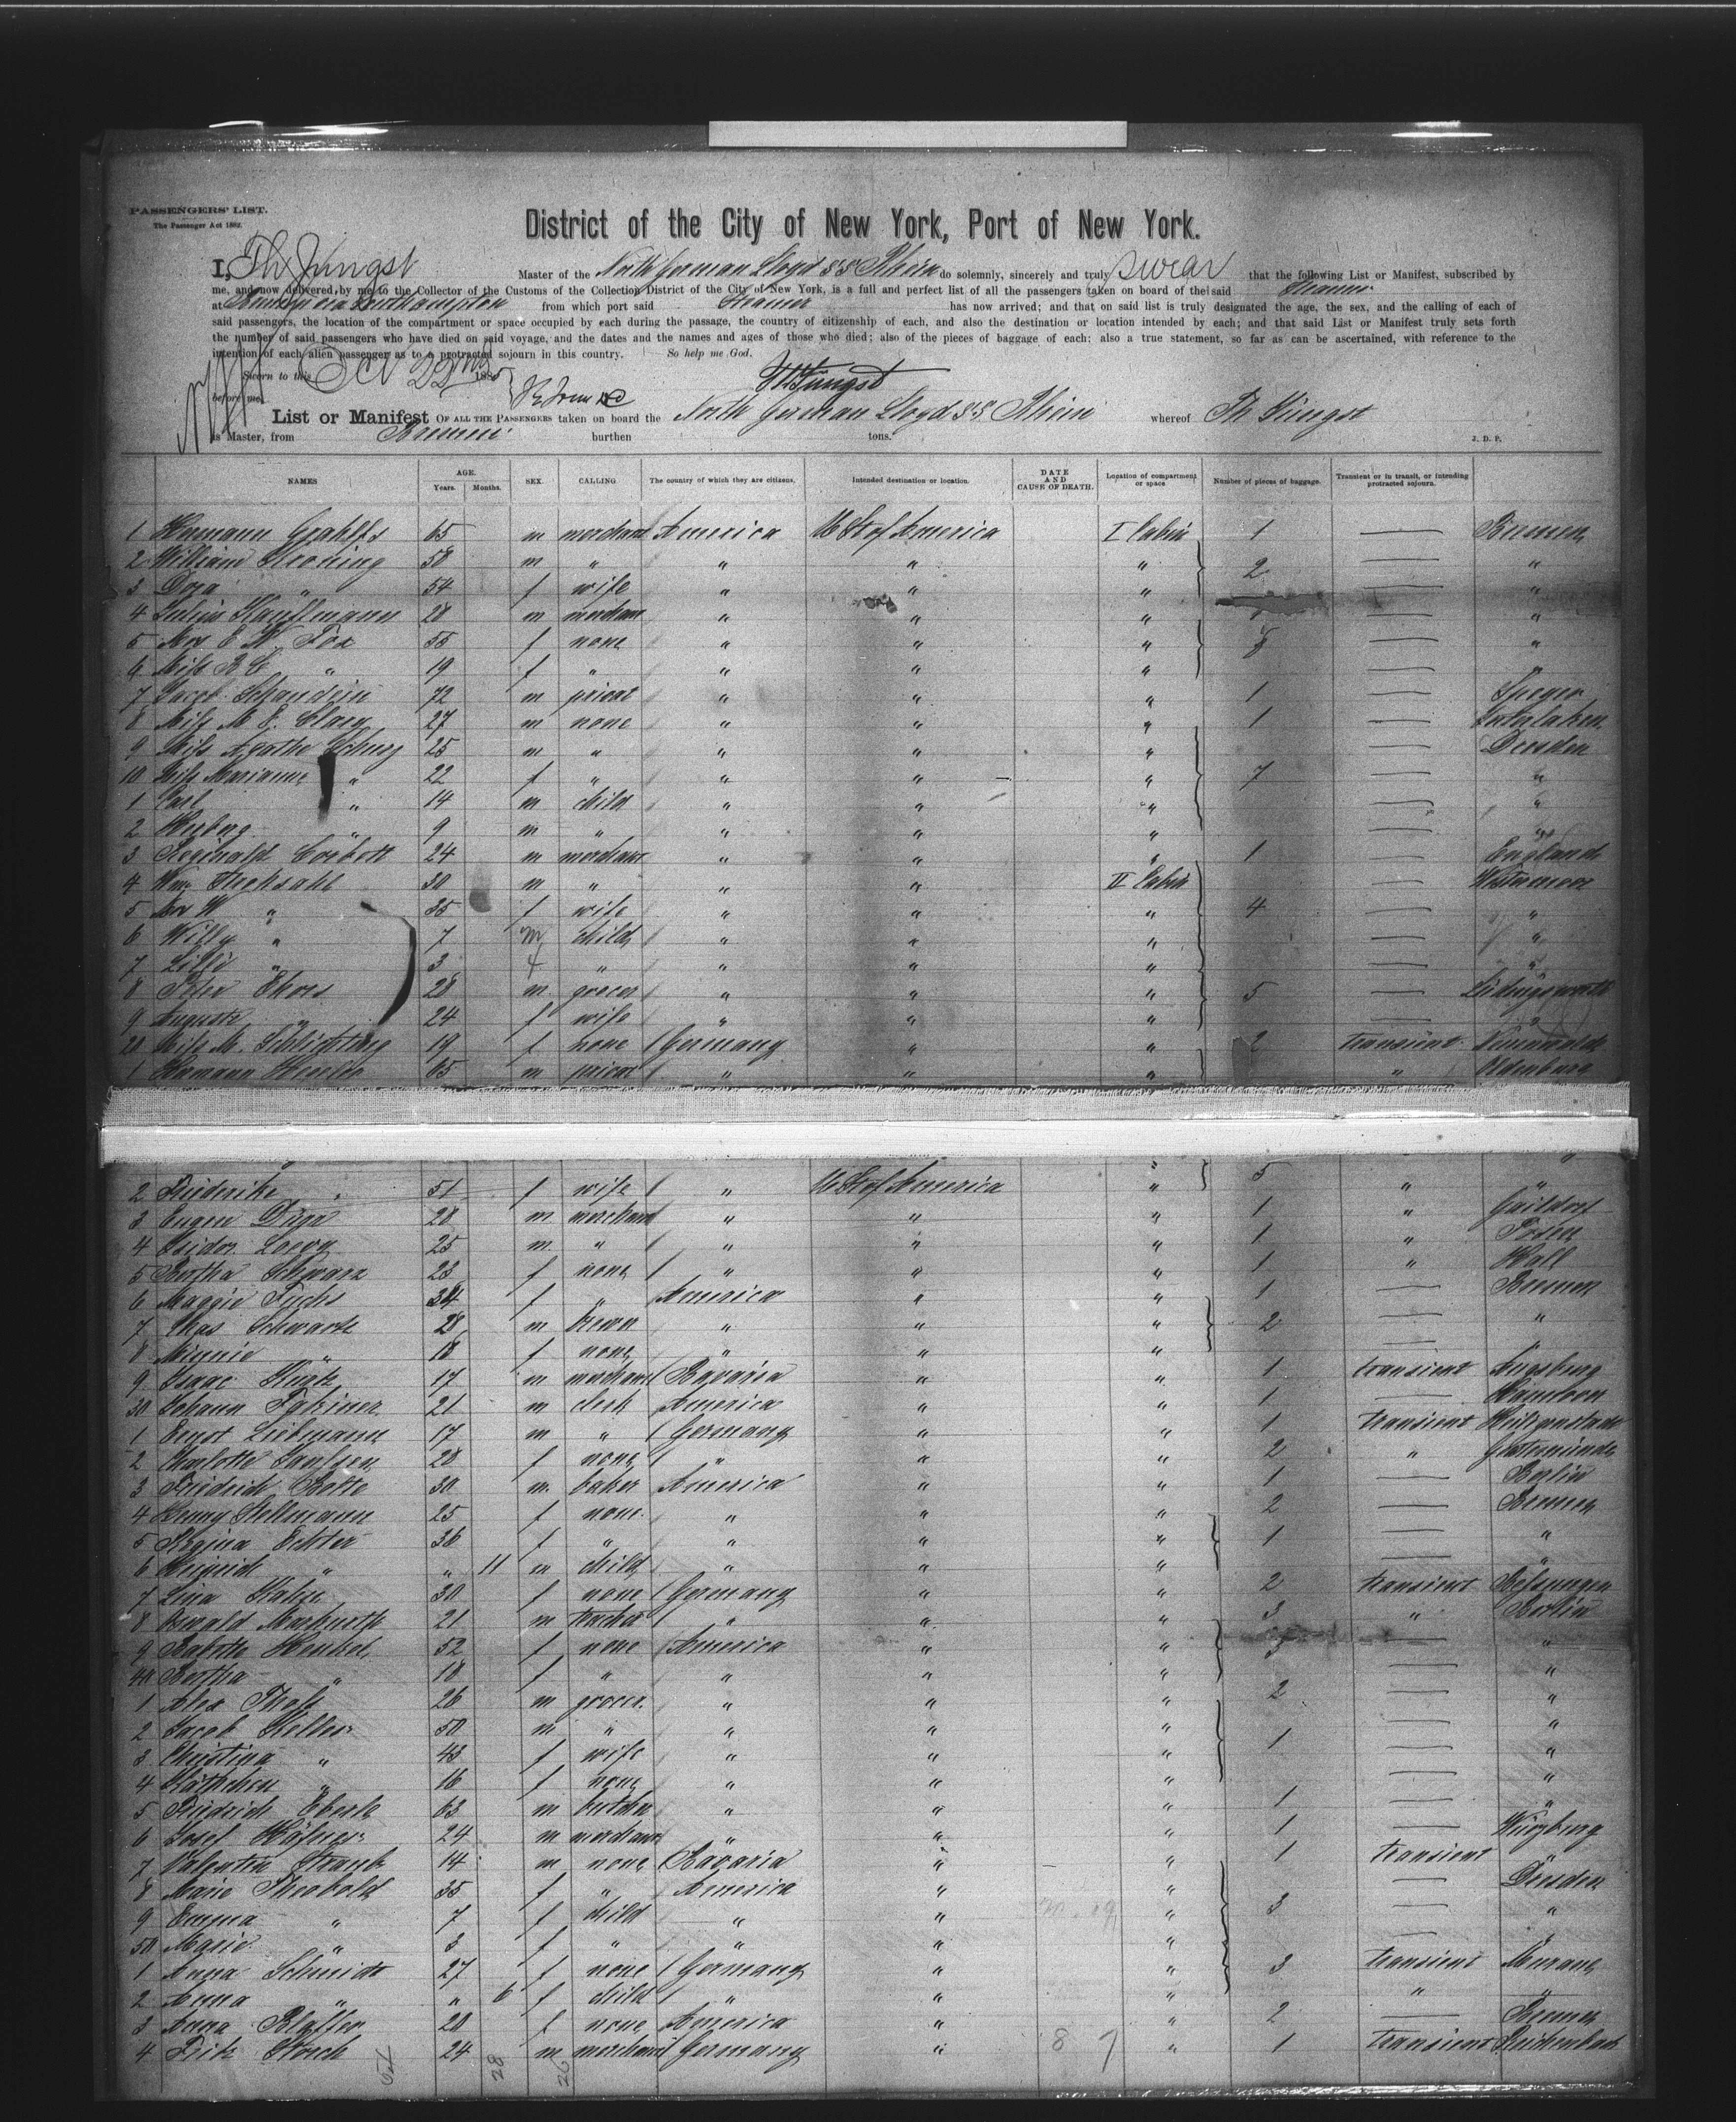 PASSENGERS' LIST.
The Passenger Act 1882.
District of the City of New York, Port of New York.
I, Th Jüngst Master of the North German Lloyd SS Rhein do solemnly, sincerely and truly swear that the following List or Manifest, subscribed by
me, and now delivered by me to the Collector of the Customs of the Collection District of the City of New York, is a full and perfect list of all the passengers taken on board of the said Steamer
at Bremen via Southampton from which port said Steamer has now arrived; and that on said list is truly designated the age, the sex, and the calling of each of
said passengers, the location of the compartment or space occupied by each during the passage, the country of citizenship of each, and also the destination or location intended by each; and that said List or Manifest truly sets forth
the number of said passengers who have died on said voyage, and the dates and the names and ages of those who died; also of the pieces of baggage of each; also a true statement, so far as can be ascertained, with reference to the
intention of each alien passenger as to a protracted sojourn in this country. So help me God.
Sworn to this Oct 22nd 1885
before me Th Jüngst
List or Manifest OF ALL THE PASSENGERS taken on board the North German Lloyd SS Rhein whereof Th Jüngst
is Master, from Bremen burthen tons. J. D. P.
NAMES AGE. Years. Months. SEX. CALLING The country of which they are citizens. Intended destination or location. DATE AND CAUSE OF DEATH. Location of compartment or space Number of pieces of baggage. Transient or in transit, or intending protracted sojourn.
1 Hermann Grahlfs 65 m merchant America U St of America I Cabin 1 — Bremen
2 William Kroning 58 m " " " " 2 — "
3 Dora " 54 f wife " " " — "
4 Julius Kauffmann 28 m merchant " " " — "
5 Mrs E. W. Fox 55 f none " " " 8 — "
6 Miss R " 19 f " " " " —
7 Jacob Schandein 72 m privat " " " 1 — Speyer
8 Miss M. E. Clary 27 m none " " " 1 — Interlaken
9 Miss Agathe Schurz 25 m " " " " — Dresden
10 Miss Marianne " 22 f " " " " 7 — "
1 Carl " 14 m child " " " — "
2 Herberg " 9 m " " " " — "
3 Reginald Corbett 24 m merchant " " " 1 — England
4 Wm 30 m " " " II Cabin —
5 Mrs W " 35 f wife " " " 4 — "
6 Willy " 7 m child " " " — "
7 Lilli " 3 f " " " " — "
8 Peter Ehors 28 m grocer " " " 5 —
9 Auguste " 24 f wife " " " — "
20 Miss M. Schlichting 19 f none Germany " " 2 transient
1 Hermann 65 m privat " " " " Oldenburg
2 Friederike " 51 f wife " U St of America " 5 " "
3 Eugen 28 m merchant " " " 1 " Gaildorf
4 Isidor Loewy 25 m " " " " 1 " Posen
5 Bertha Schwarz 23 f none " " " 1 " Hall
6 Maggie Fuchs 34 f " America " " 1 — Bremen
7 Chas Schwartz 28 m brewer " " " 2 — "
8 Minnie " 18 f none " " " — "
9 Isaac 17 m merchant Bavaria " " 1 transient Augsburg
30 Johann 21 m clerk America " " 1 —
1 Ernst Liebmann 17 m " Germany " " 1 transient Heiligenstadt
2 Charlotte Paulsen 28 f none " " " 2 " Geestemünde
3 Friedrich Botte 30 m baker America " " 1 — Berlin
4 Henny Stellmann 25 f none " " " 2 — Bremen
5 Regina Eckter 36 f " " " " 1 — "
6 Heinrich " " 11 m child " " " — "
7 Lina Hahn 30 f none Germany " " 2 transient Melsungen
8 Oswald 21 m teacher " " " 3 " Berlin
9 Babette Henkel 52 f none America " " 3 — "
40 Bertha " 18 f " " " " — "
1 Alex 26 m grocer " " " 2 — "
2 Jacob Keller 50 m " " " " — "
3 Christina " 43 f wife " " " 1 — "
4 Käthchen " 16 f none " " " — "
5 Friedrich Eberle 63 m butcher " " " 1 — "
6 Josef Häfner 24 m merchant " " " 1 — Würzburg
7 Valentin Straub 14 m none Bavaria " " 1 transient "
8 Marie Theobold 35 f " America " " — Dresden
9 Emma " 7 f child " " " 3 — "
50 Marie " 3 f " " " " — "
1 Anna Schmidt 27 f none Germany " " 3 transient Meerane
2 Anna " " 6 f child " " " " "
3 Anna Blaffer 20 f none America " " 2 — Bremen
4 Fritz Storch 24 m merchant Germany " " 1 transient Reichenbach
28 26 8 7